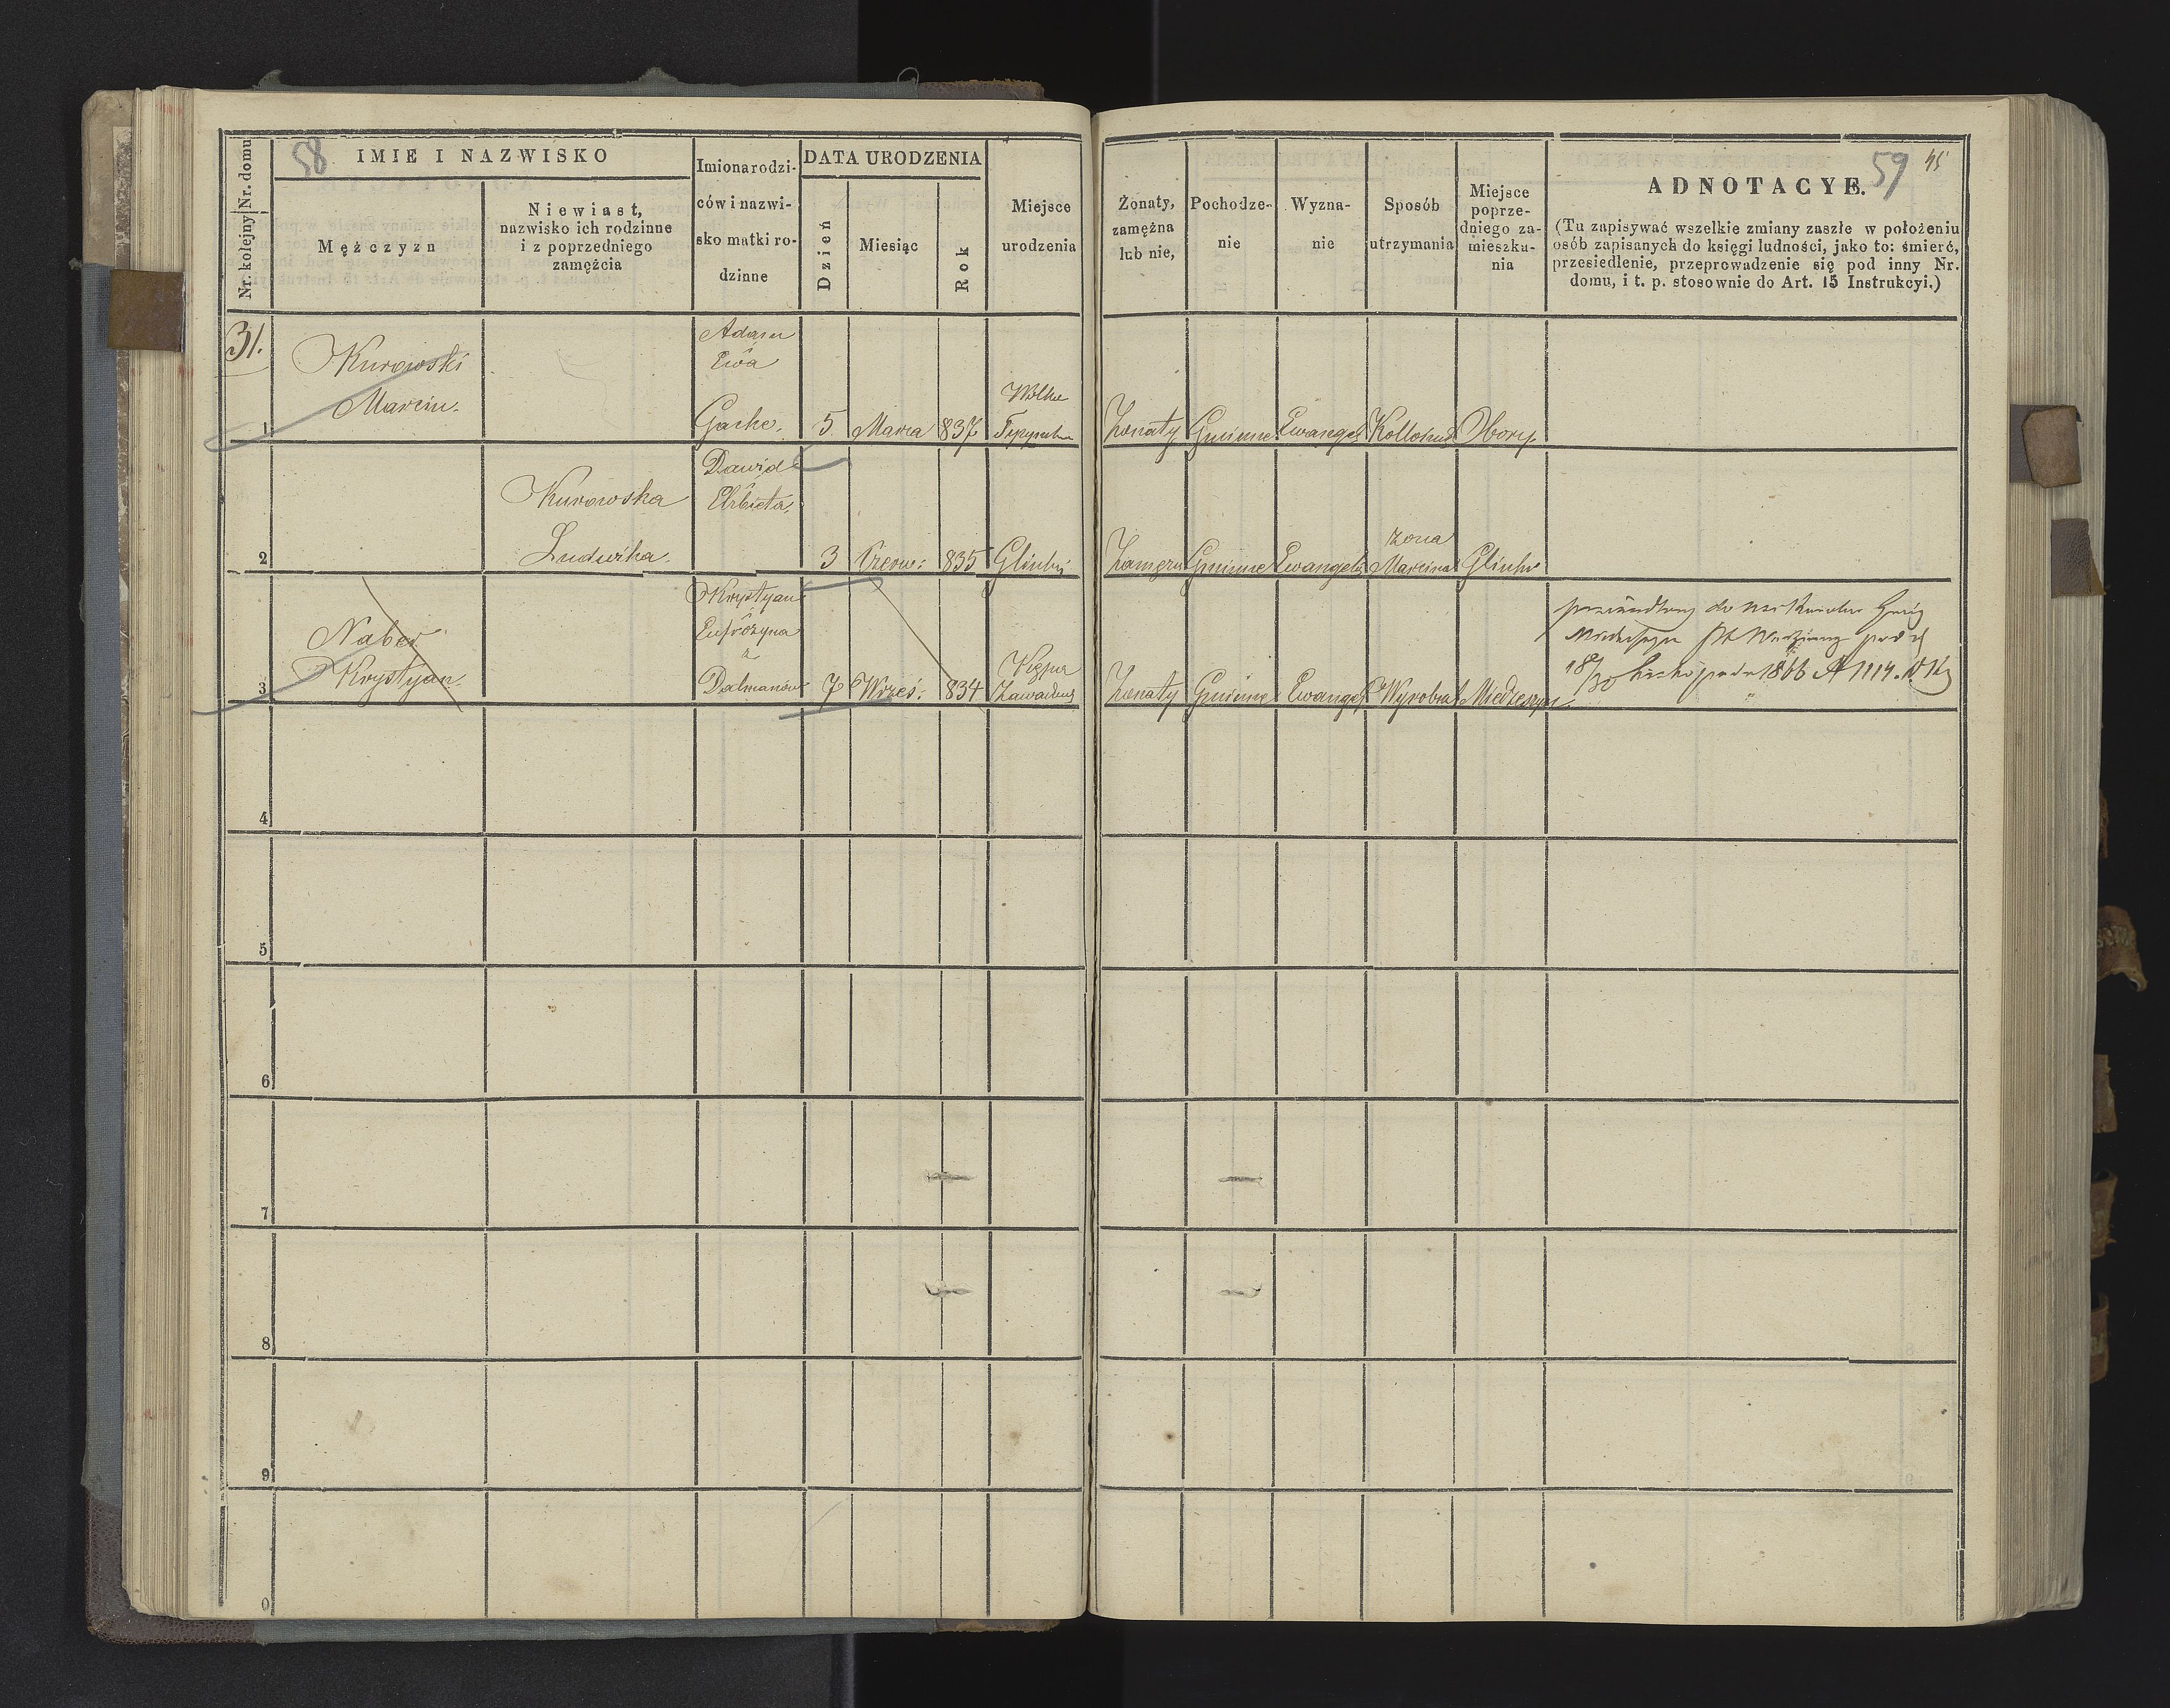 58
Nr. kolejny Nr. domu
IMIE I NAZWISKO
Mężczyzn
Niewiast,
nazwisko ich rodzinne
i z poprzedniego
zamężcia
Imiona rodzi-
ców i nazwi-
sko matki ro-
dzinne
DATA URODZENIA
Dzień
Miesiąc
Rok
Miejsce
urodzenia
Żonaty,
zamężna
lub nie,
Pochodze-
nie
Wyzna-
nie
Sposób
utrzymania
Miejsce
poprze-
dniego za-
mieszka-
nia
59
45
ADNOTACYE.
(Tu zapisywać wszelkie zmiany zaszłe w położeniu
osób zapisanych do księgi ludności, jako to: śmierć,
przesiedlenie, przeprowadzenie się pod inny Nr.
domu, i t. p. stosownie do Art. 15 Instrukcyi.)
31.
1
Kurowski
Marcin.
Adam
Ewa
5 Marca 837
Żonaty Gminne Ewangel Obory
2
Kurowska
Ludwika.
Dawid
Elżbieta
3 Czerw: 835
Gminne Ewangel
żona
Marcina
3
Naber
Krystyan
Krystyan
Eufrozyna
z
Dalmanów
7 Wrześ: 834
Kępa
Zawadows
Żonaty Gminne Ewangel Wyrobnik Miedzeszyn
18/30 1866 1114
4
5
6
7
8
9
0